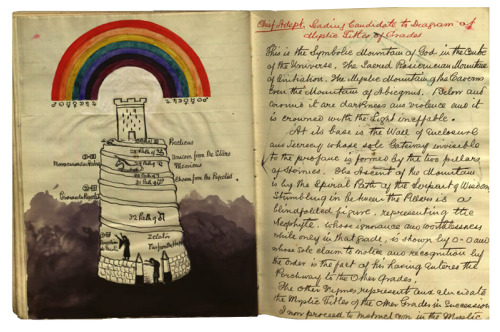 Practicus
Unicorn from the Stars
Theoricus
Chosen from the Peoples
32 Path of ת
Zelator
Neophyte
Chief Adept, leading Candidate to Diagram of
Mystic Titles of Grades
This is the Symbolic Mountain of God in the Centre
of the Universe. The Sacred Rosicrucian Mountain
of Initiation. The Mystic Mountain of the Caverns
Even the Mountain of Abiegnus. Below and
around it are darkness and violence and it
is crowned with the Light ineffable.
At its base is the Wall of Enclosure
and Secrecy whose sole Gateway invisible
to the profane is formed by the two pillars
of Hermes. The Ascent of the Mountain
is by the Spiral Path of the Serpent of Wisdom
Stumbling in between the Pillars is a
blindfolded figure, representing the
Neophyte, whose ignorance and worthlessness
while only in that grade, is shown by 0=0 and
whose sole claim to notice and recognition by
the Order is the fact of his having entered the
Porchway to the Other Grades.
The other Frymes represent and elucidate
the Mystic Titles of the Other Grades in Succession
I now proceed to instruct you in the Mystic